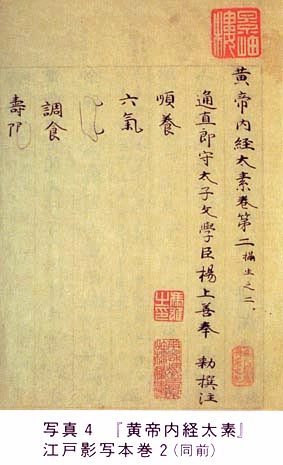 黄帝内経太素卷第二 攝生之二
通直郎守太子文學臣楊上善奉 勅撰注
順養
六氣
調食
壽
写真4 『黄帝内経太素』
江戸影写本巻2(同前)